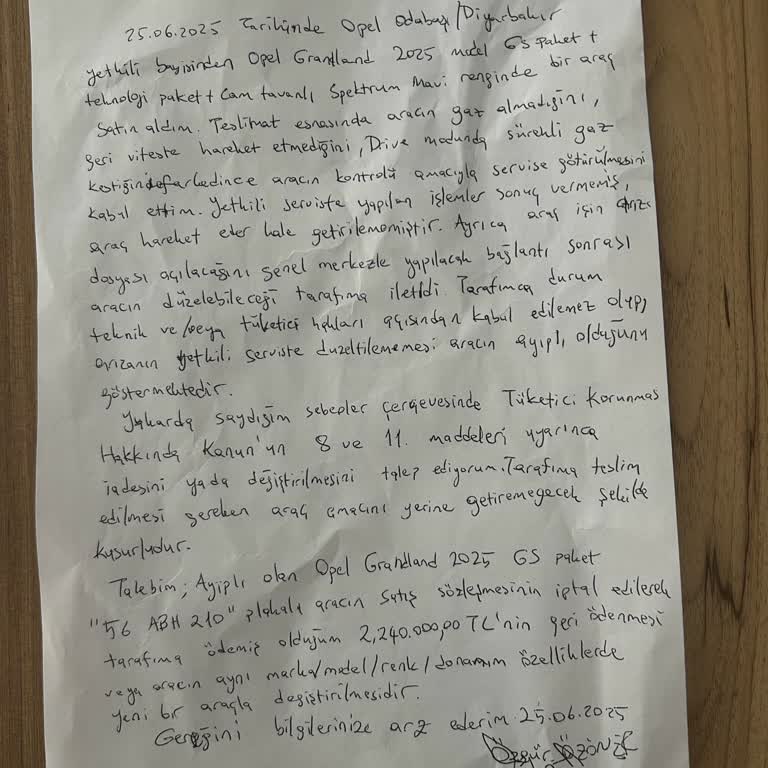 25.06.2025 Tarihinde Opel Odabaşı/Diyarbakır
yetkili bayisinden Opel Grandland 2025 model GS paket +
teknoloji paket + Cam tavanlı Spektrum Mavi renginde bir araç
Satın aldım. Teslimat esnasında aracın gaz almadığını,
geri viteste hareket etmediğini, Drive modunda sürekli gaz
kestiğini farkedince aracın kontrolü amacıyla servise götürülmesini
kabul ettim. Yetkili serviste yapılan işlemler sonuç vermemiş,
araç hareket eder hale getirilememiştir. Ayrıca araç için arıza
dosyası açılacağını genel merkezle yapılacak bağlantı sonrası
aracın düzelebileceği tarafıma iletildi. Tarafımca durum
teknik ve/veya tüketici hakları açısından kabul edilemez olup,
arızanın yetkili serviste düzeltilememesi aracın ayıplı olduğunu
göstermektedir.
Yukarda saydığım sebepler çerçevesinde Tüketici Korunması
Hakkında Kanun'un 8 ve 11. maddeleri uyarınca
iadesini yada değiştirilmesini talep ediyorum. Tarafıma teslim
edilmesi gereken araç amacını yerine getiremeyecek şekilde
kusurludur.
Talebim; Ayıplı olan Opel Grandland 2025 GS paket
"56 ABH 210" plakalı aracın Satış sözleşmesinin iptal edilerek
tarafıma ödemiş olduğum 2,240.000,00 TL'nin geri ödenmesi
veya aracın aynı marka/model/renk/donanım özelliklerde
yeni bir araçla değiştirilmesidir.
Gereğini bilgilerinize arz ederim 25.06.2025
Özgür